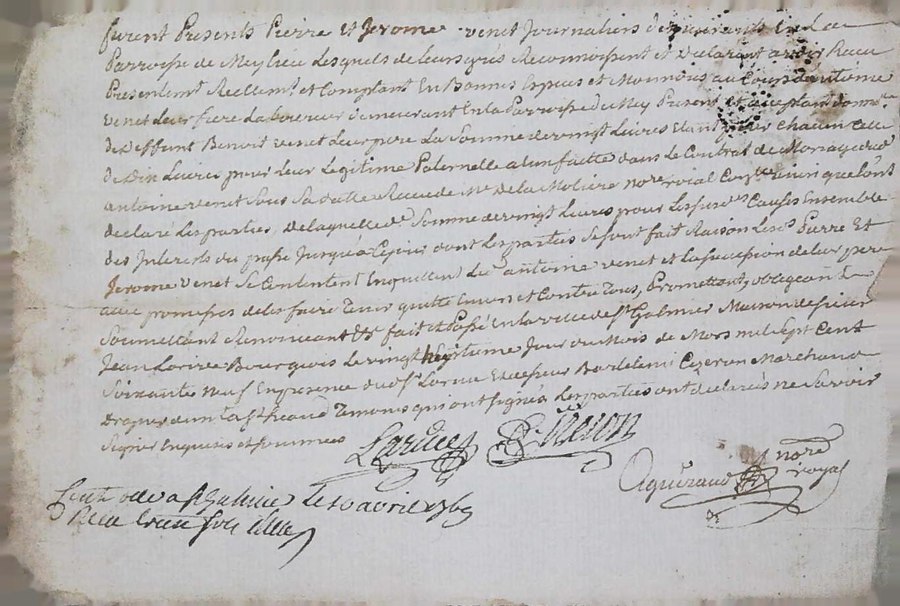 furent Presents Pierre et Jerome venet Journaliers demeurants En la
Parroisse de Meylieu Lesquels de Leurs grés Reconnoissent et declarent avoir Recu
Presentemt Reellemt et Comptant En Bonnes Especes et Monnoies au Cours d'antoine
venet Leur frere Laboureur demeurant En la Parroisse du Mey Present et acceptant
de deffunt Benoit venet Leur pere La Somme de vingt Livres Etant pour Chacun Celle
de Dix Livres pour Leur Legitime Paternelle a Eux faitte dans Le Contrat de Mariage dud
antoine venet Sous Sa datte Recu de Me de la Moliere nore roial quelont
declaré Les parties de laquelle de Somme de vingt Livres pour Les Causes Ensemble
des Interets du passé Jusqu'a Ce jour dont Les parties Se sont fait Raison Les Pierre Et
Jerome venet Se Contentent En quittent Led antoine venet et la succession de leur pere
avec promesses de Les faire Tenir quitte Envers et Contre Tous, Promettant, obligeant
Soumettant Renonceant &c fait et Passé En la ville de St Galmier Maison de Sieur
Jean Larive Bourgeois Le vingt Jour du Mois de Mars mil Sept Cent
Soixante Neuf En presence dud Sr Larive Et de Sieur Bartelemi Marchand
Drapier dud St heand Temoins qui ont signé Les parties ont declarés ne Savoir
Signer Enquises et Sommees
Larive
nore
royal
Controlé a St Galmier Le 10 avril 1769
Recu